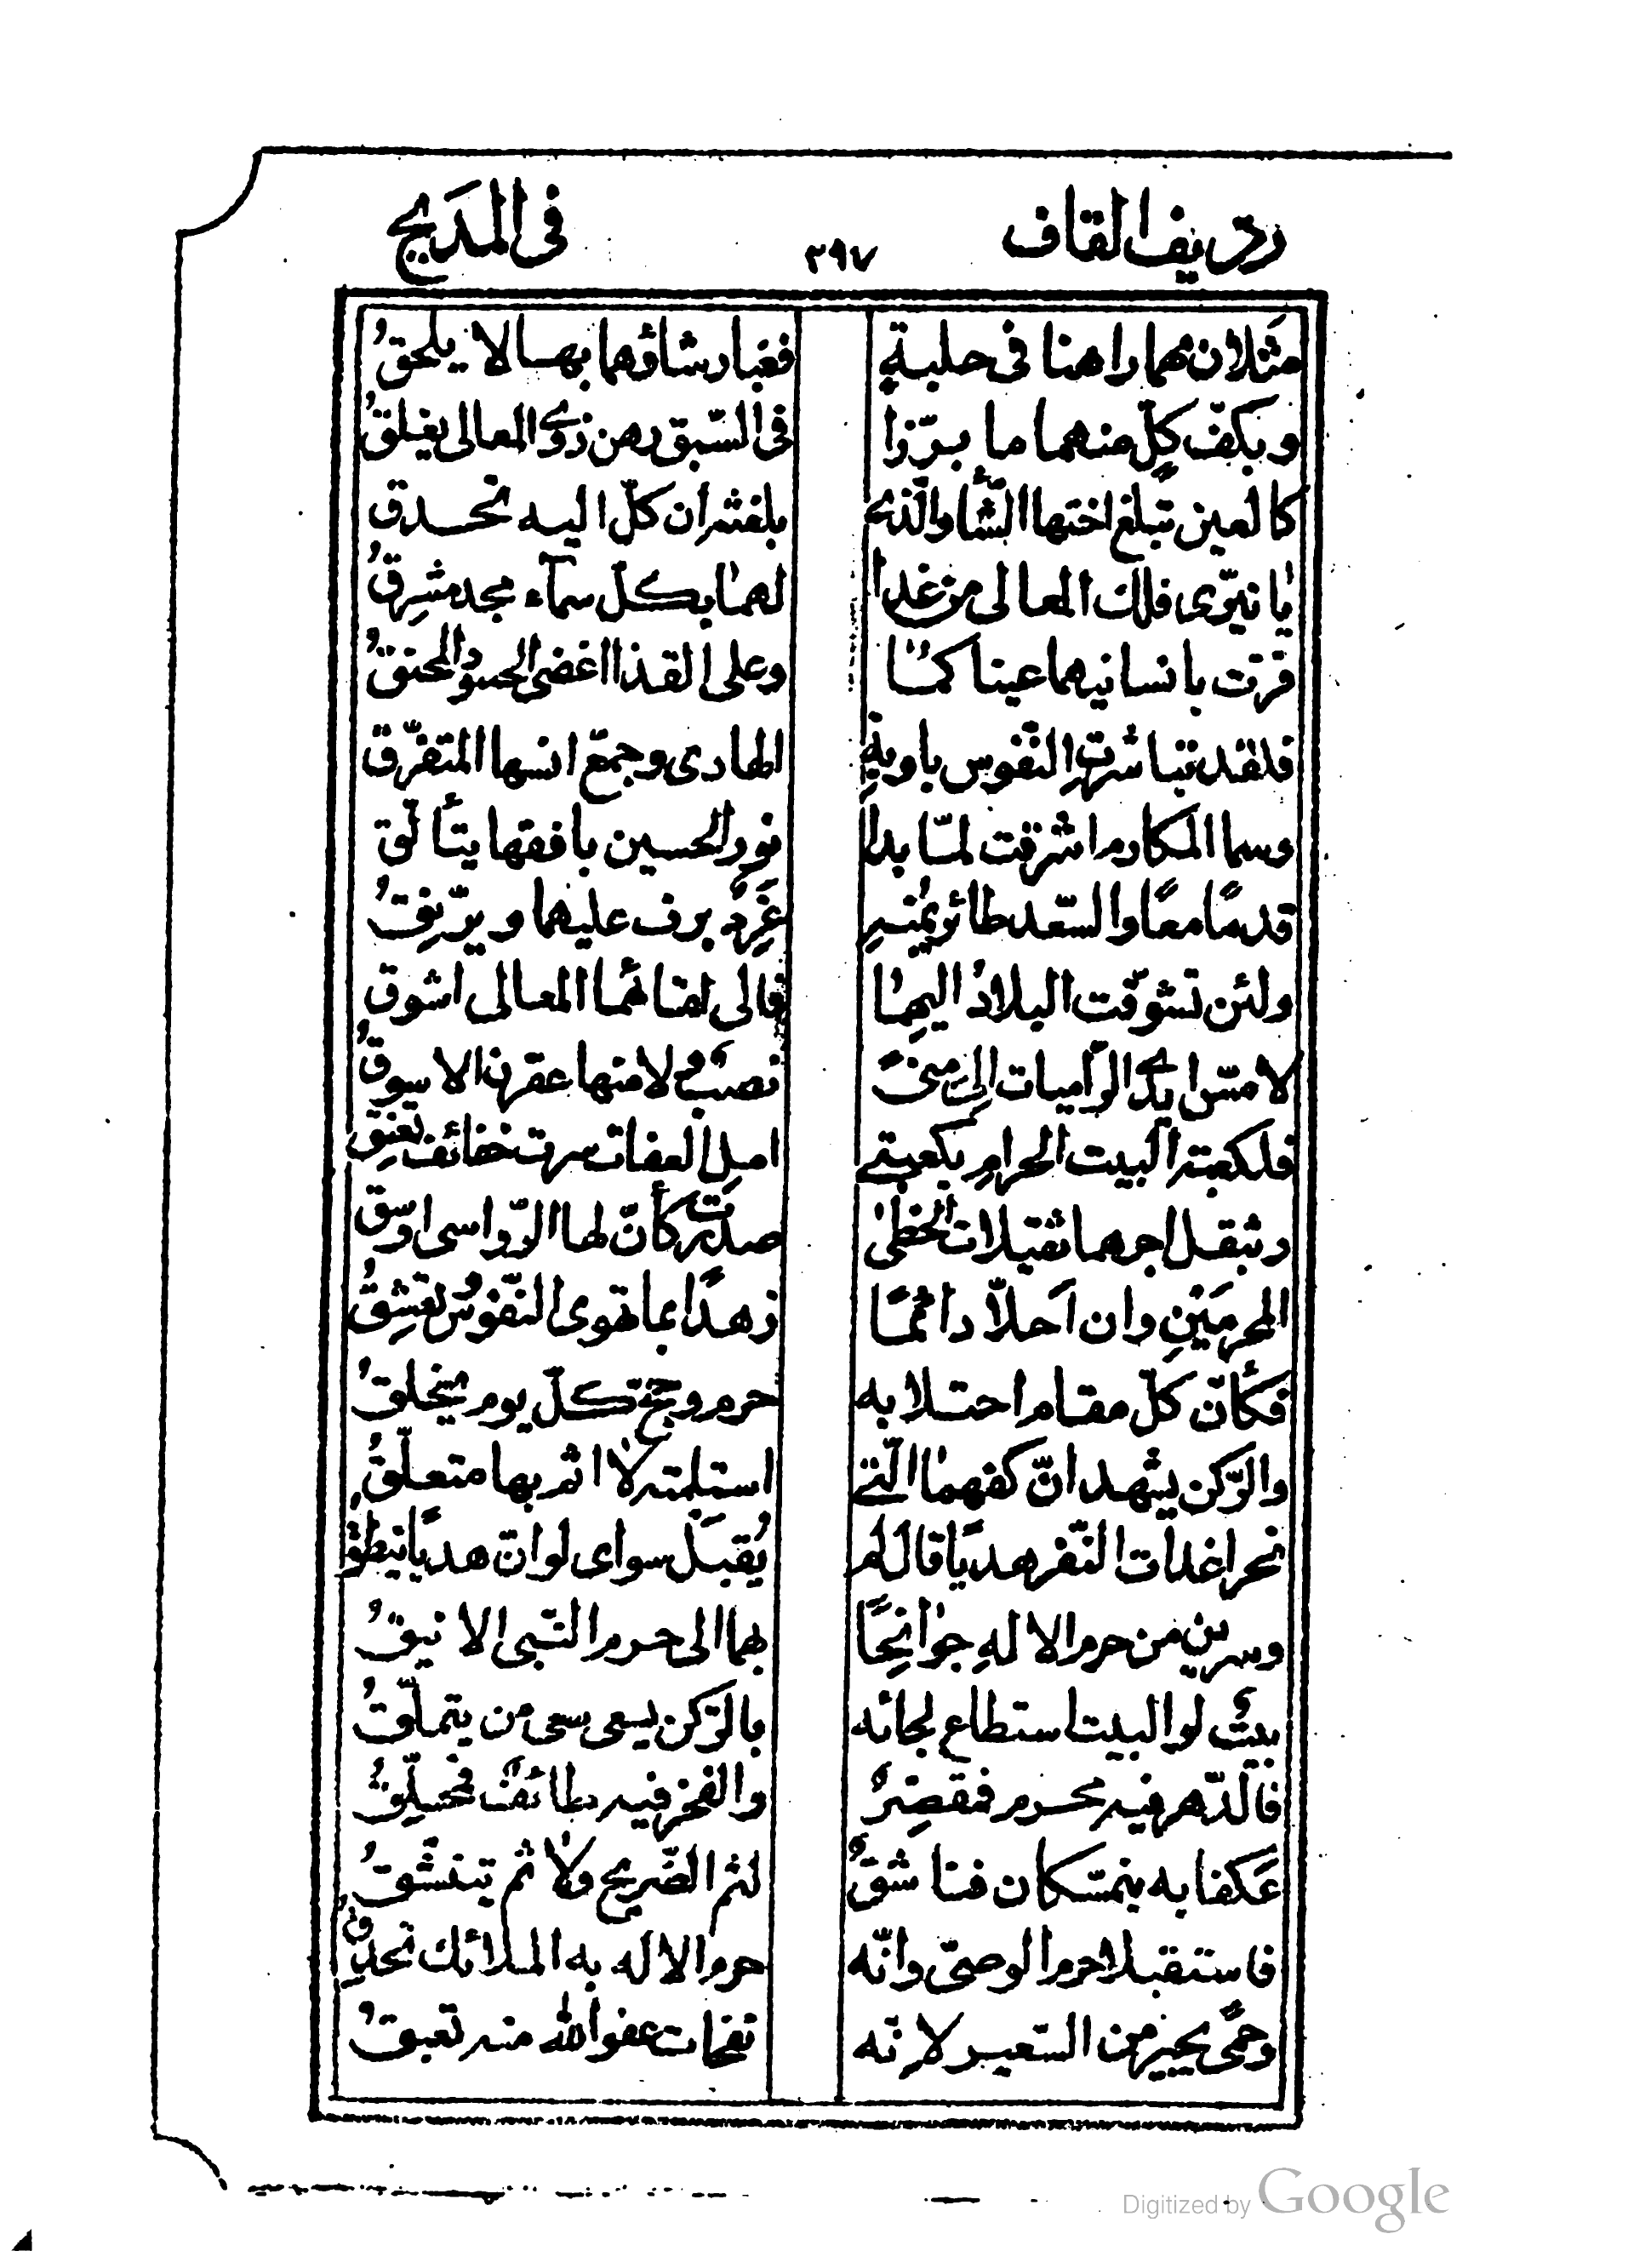 رديف القاف ٣٩٧ في المديح
مثلان مهما راهنا في حلبةٍ فغبار شاؤهما بها لا يلحقُ
وبكفّ كلّ منهما ما برّزا في السّبق رهن ذوي المعالى يغلقُ
كالعين تبلغ اختها الشّأو الّذي بلغته ان كلّ اليه تحدق
يا نيّرى فلك المعالى من غدا لهما بكل سمآء مجد مشرقُ
قرّت بانسانيهما عينا كما وعلى القذا اغضى الحسود المحنقُ
فلقد تباشرت النّفوس باوبةِ الهادى وجمّع انسها المتفرّق
وسما المكارم اشرقت لمّا بدا نور الحسين بافقها يتألّق
قدما معًا والسّعد طائر يمنه غَرِدٌ يرف عليهما ويرّنِقُ
ولئن تشوّقت البلادُ اليهما فالى لقائهما المعالى اشوق
لا مسّ ايدى الرّاميات الى منىً نصبٌ ولا منها عقرن الاسوقُ
فلكعبة البيت الحرامِ بكعبتي امل العفات سرت خفائف تعنِقُ
وبثقل اجرهما ثقيلات الخطى صدرت كأنّ لها الرّواسى اوسق
المحرمَيْنِ وان اَحلّا دائمًا زهدًا بما تهوى النّفوسُ تعشِقُ
فكأنّ كلّ مقام احتلا به حرم وحجّ كلّ يوم يخلقُ
والرّكن يشهد انّ كفهما الّتي استلمته لا اثم بها متعلّقُ
نحرا غداة النّفر هديًا قال لم يُقبَل سواى لو انّ هديًا ينطقُ
وسرين من حرم الالهِ جوانِحًا بهما الى حرم النّبى الانيقُ
بيتٌ لو البيت استطاع لجائه بالرّكن يسعى سعى من يتملّقُ
فالدّهر فيه محرم فمقصِرٌ والفخر فيه طائفٌ فمحلِّقُ
عَكفا به يتمسّكان فناشقٌ لثم الضّريح ولاثم يتنشّقُ
فاستقبلا حرم الوصىّ وانّه حرم الاله به الملائك تحدِقُ
وحمىً يجير من السّعير لانّه نفحات عفو الله منه تعبقُ
Digitized by Google